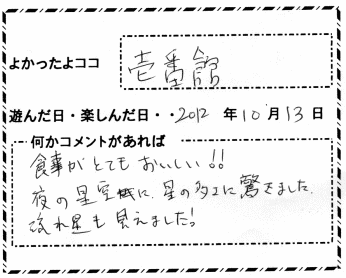 よかったよココ 壱番館
遊んだ日・楽しんだ日・・2012 年 10 月 13 日
何かコメントがあれば
食事がとてもおいしい!!
夜の星空 に、星の多さに驚きました。
流れ星も見えました!